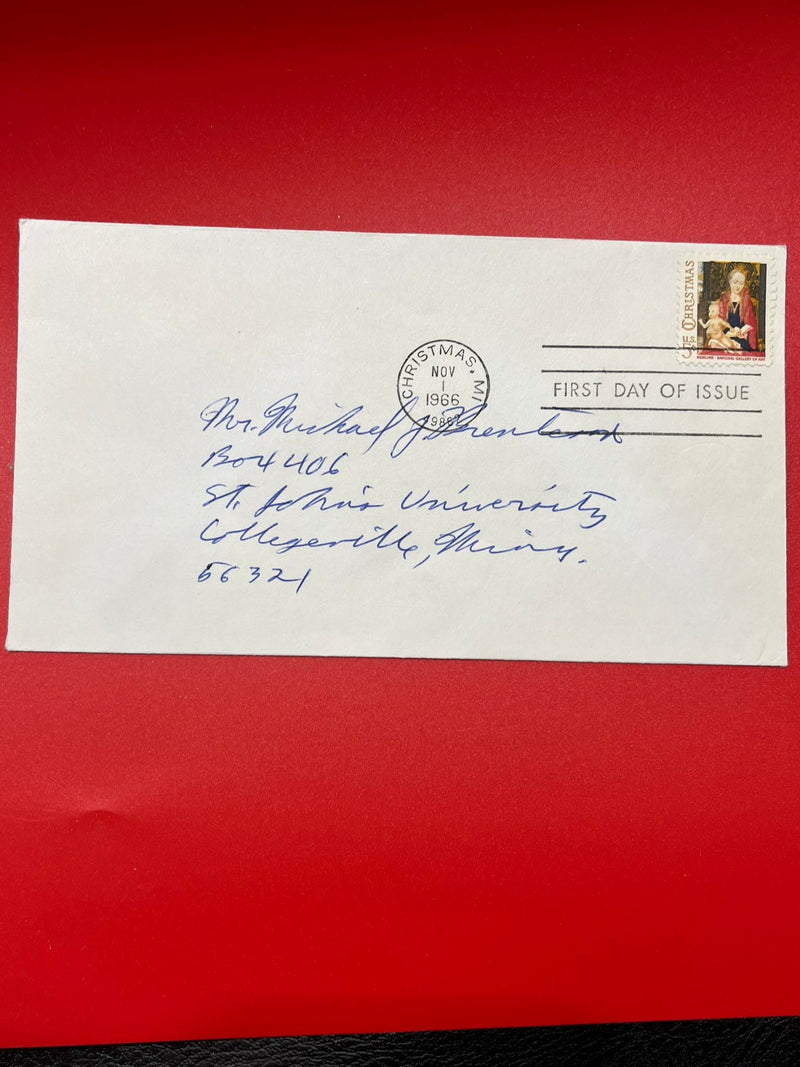 5¢ CHRISTMAS
MEMLING · NATIONAL GALLERY OF ART
CHRISTMAS, MI
NOV
1
1966
49862
FIRST DAY OF ISSUE
Mr. Michael J
Box 406
St. John's University
Collegeville, Minn.
56321